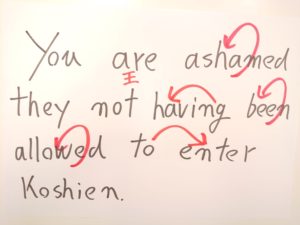 You are ashamed
they not having been
allowed to enter
Koshien.